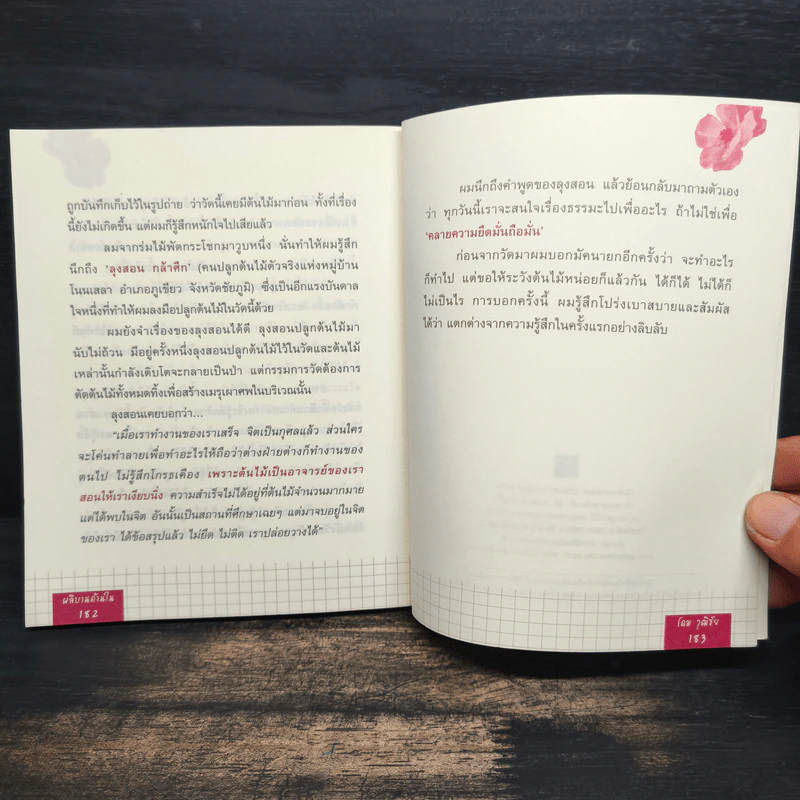 ถูกบันทึกเก็บไว้ในรูปถ่าย ว่าวัดนี้เคยมีต้นไม้มาก่อน ทั้งที่เรื่อง
นี้ยังไม่เกิดขึ้น แต่ผมก็รู้สึกหนักใจไปเสียแล้ว
ลมจากร่มไม้พัดกระโชกมาวูบหนึ่ง นั่นทำให้ผมรู้สึก
นึกถึง 'ลุงสอน กล้าศึก' (คนปลูกต้นไม้ตัวจริงแห่งหมู่บ้าน
โนนเสลา อำเภอภูเขียว จังหวัดชัยภูมิ) ซึ่งเป็นอีกแรงบันดาล
ใจหนึ่งที่ทำให้ผมลงมือปลูกต้นไม้ในวัดนี้ด้วย
ผมยังจำเรื่องของลุงสอนได้ดี ลุงสอนปลูกต้นไม้มา
นับไม่ถ้วน มีอยู่ครั้งหนึ่งลุงสอนปลูกต้นไม้ไว้ในวัดและต้นไม้
เหล่านั้นกำลังเติบโตจะกลายเป็นป่า แต่กรรมการวัดต้องการ
ตัดต้นไม้ทั้งหมดทิ้งเพื่อสร้างเมรุเผาศพในบริเวณนั้น
ลุงสอนเคยบอกว่า...
"เมื่อเราทำงานของเราเสร็จ จิตเป็นกุศลแล้ว ส่วนใคร
จะโค่นทำลายเพื่อทำอะไรให้ถือว่าต่างฝ่ายต่างก็ทำงานของ
ตนไป ไม่รู้สึกโกรธเคือง เพราะต้นไม้เป็นอาจารย์ของเรา
สอนให้เราเงียบนิ่ง ความสำเร็จไม่ได้อยู่ที่ต้นไม้จำนวนมากมาย
แต่ได้พบในจิต อันนั้นเป็นสถานที่ศึกษาเฉยๆ แต่มาจบอยู่ในจิต
ของเรา ได้ข้อสรุปแล้ว ไม่ยึด ไม่ติด เราปล่อยวางได้"
ผลิบานด้านใน
182
ผมนึกถึงคำพูดของลุงสอน แล้วย้อนกลับมาถามตัวเอง
ว่า ทุกวันนี้เราจะสนใจเรื่องธรรมะไปเพื่ออะไร ถ้าไม่ใช่เพื่อ
'คลายความยึดมั่นถือมั่น'
ก่อนจากวัดมาผมบอกมัคนายกอีกครั้งว่า จะทำอะไร
ก็ทำไป แต่ขอให้ระวังต้นไม้หน่อยก็แล้วกัน ได้ก็ได้ ไม่ได้ก็
ไม่เป็นไร การบอกครั้งนี้ ผมรู้สึกโปร่งเบาสบายและสัมผัส
ได้ว่า แตกต่างจากความรู้สึกในครั้งแรกอย่างลิบลับ
โดม วุฒิชัย
183